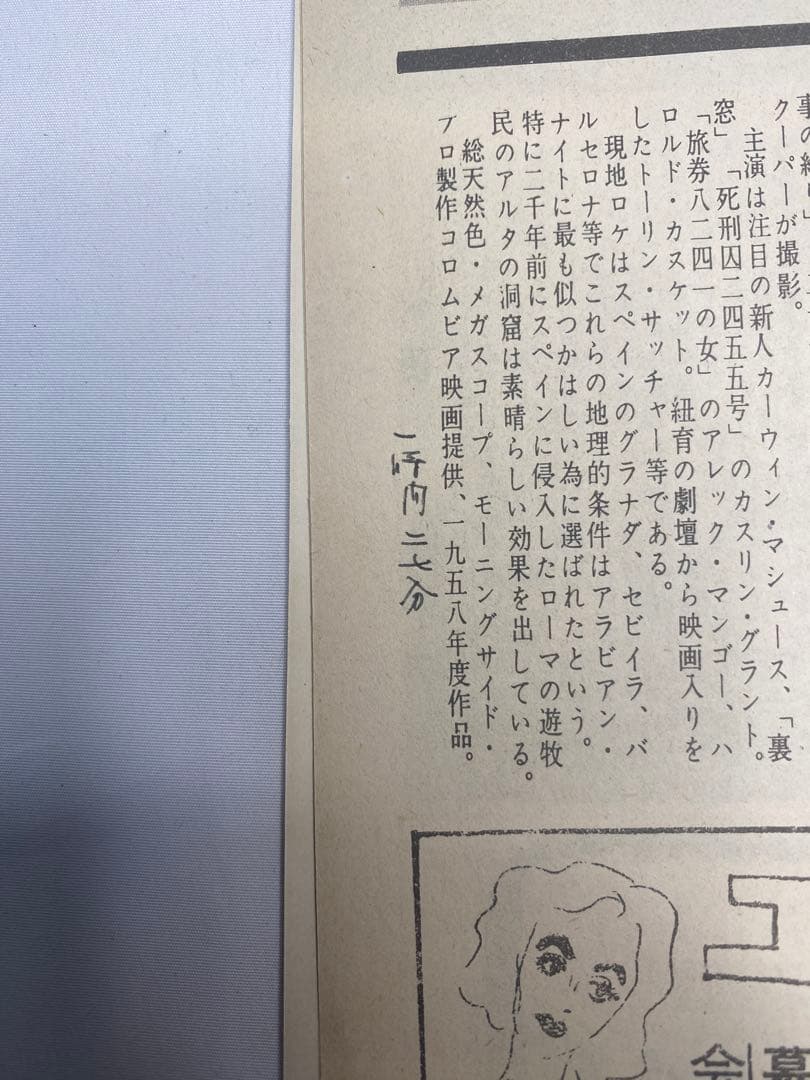 クーパーが撮影。
主演は注目の新人カーウィン・マシュース、「裏
窓」「死刑囚二四五五号」のカスリン・グラント。
「旅券八二四一の女」のアレック・マンゴー、ハ
ロルド・カスケット。紐育の劇壇から映画入りを
したトーリン・サッチャー等である。
現地ロケはスペインのグラナダ、セビイラ、バ
ルセロナ等でこれらの地理的条件はアラビアン・
ナイトに最も似つかはしい為に選ばれたという。
特に二千年前にスペインに侵入したローマの遊牧
民のアルタの洞窟は素晴らしい効果を出している。
総天然色・メガスコープ、モーニングサイド・
プロ製作コロムビア映画提供、一九五八年度作品。
一時間二七分